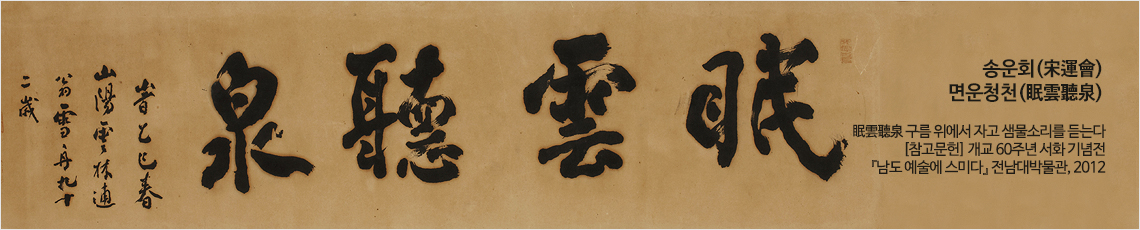 송운회(宋運會)
면운청천(眠雲聽泉)
眠雲聽泉 구름 위에서 자고 샘물소리를 듣는다
[참고문헌] 개교 60주년 서화 기념전
『남도 예술에 스미다』, 전남대박물관, 2012
眠雲聽泉
旹乙巳春
山陽雲林逋
翁雪舟九十
二歲